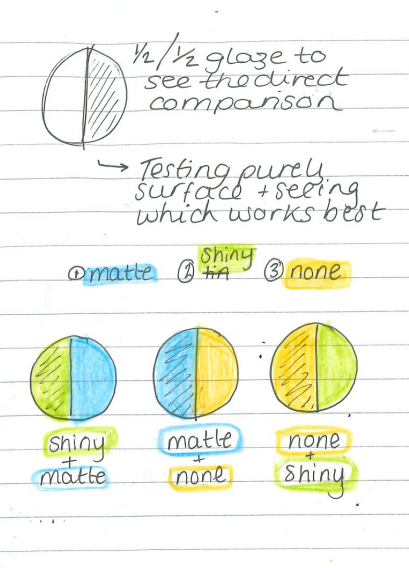 1/2 / 1/2 glaze to
see the direct
comparison
→ Testing purely
surface + seeing
which works best
① matte ② shiny ③ none
shiny
+
matte
matte
+
none
none
+
shiny